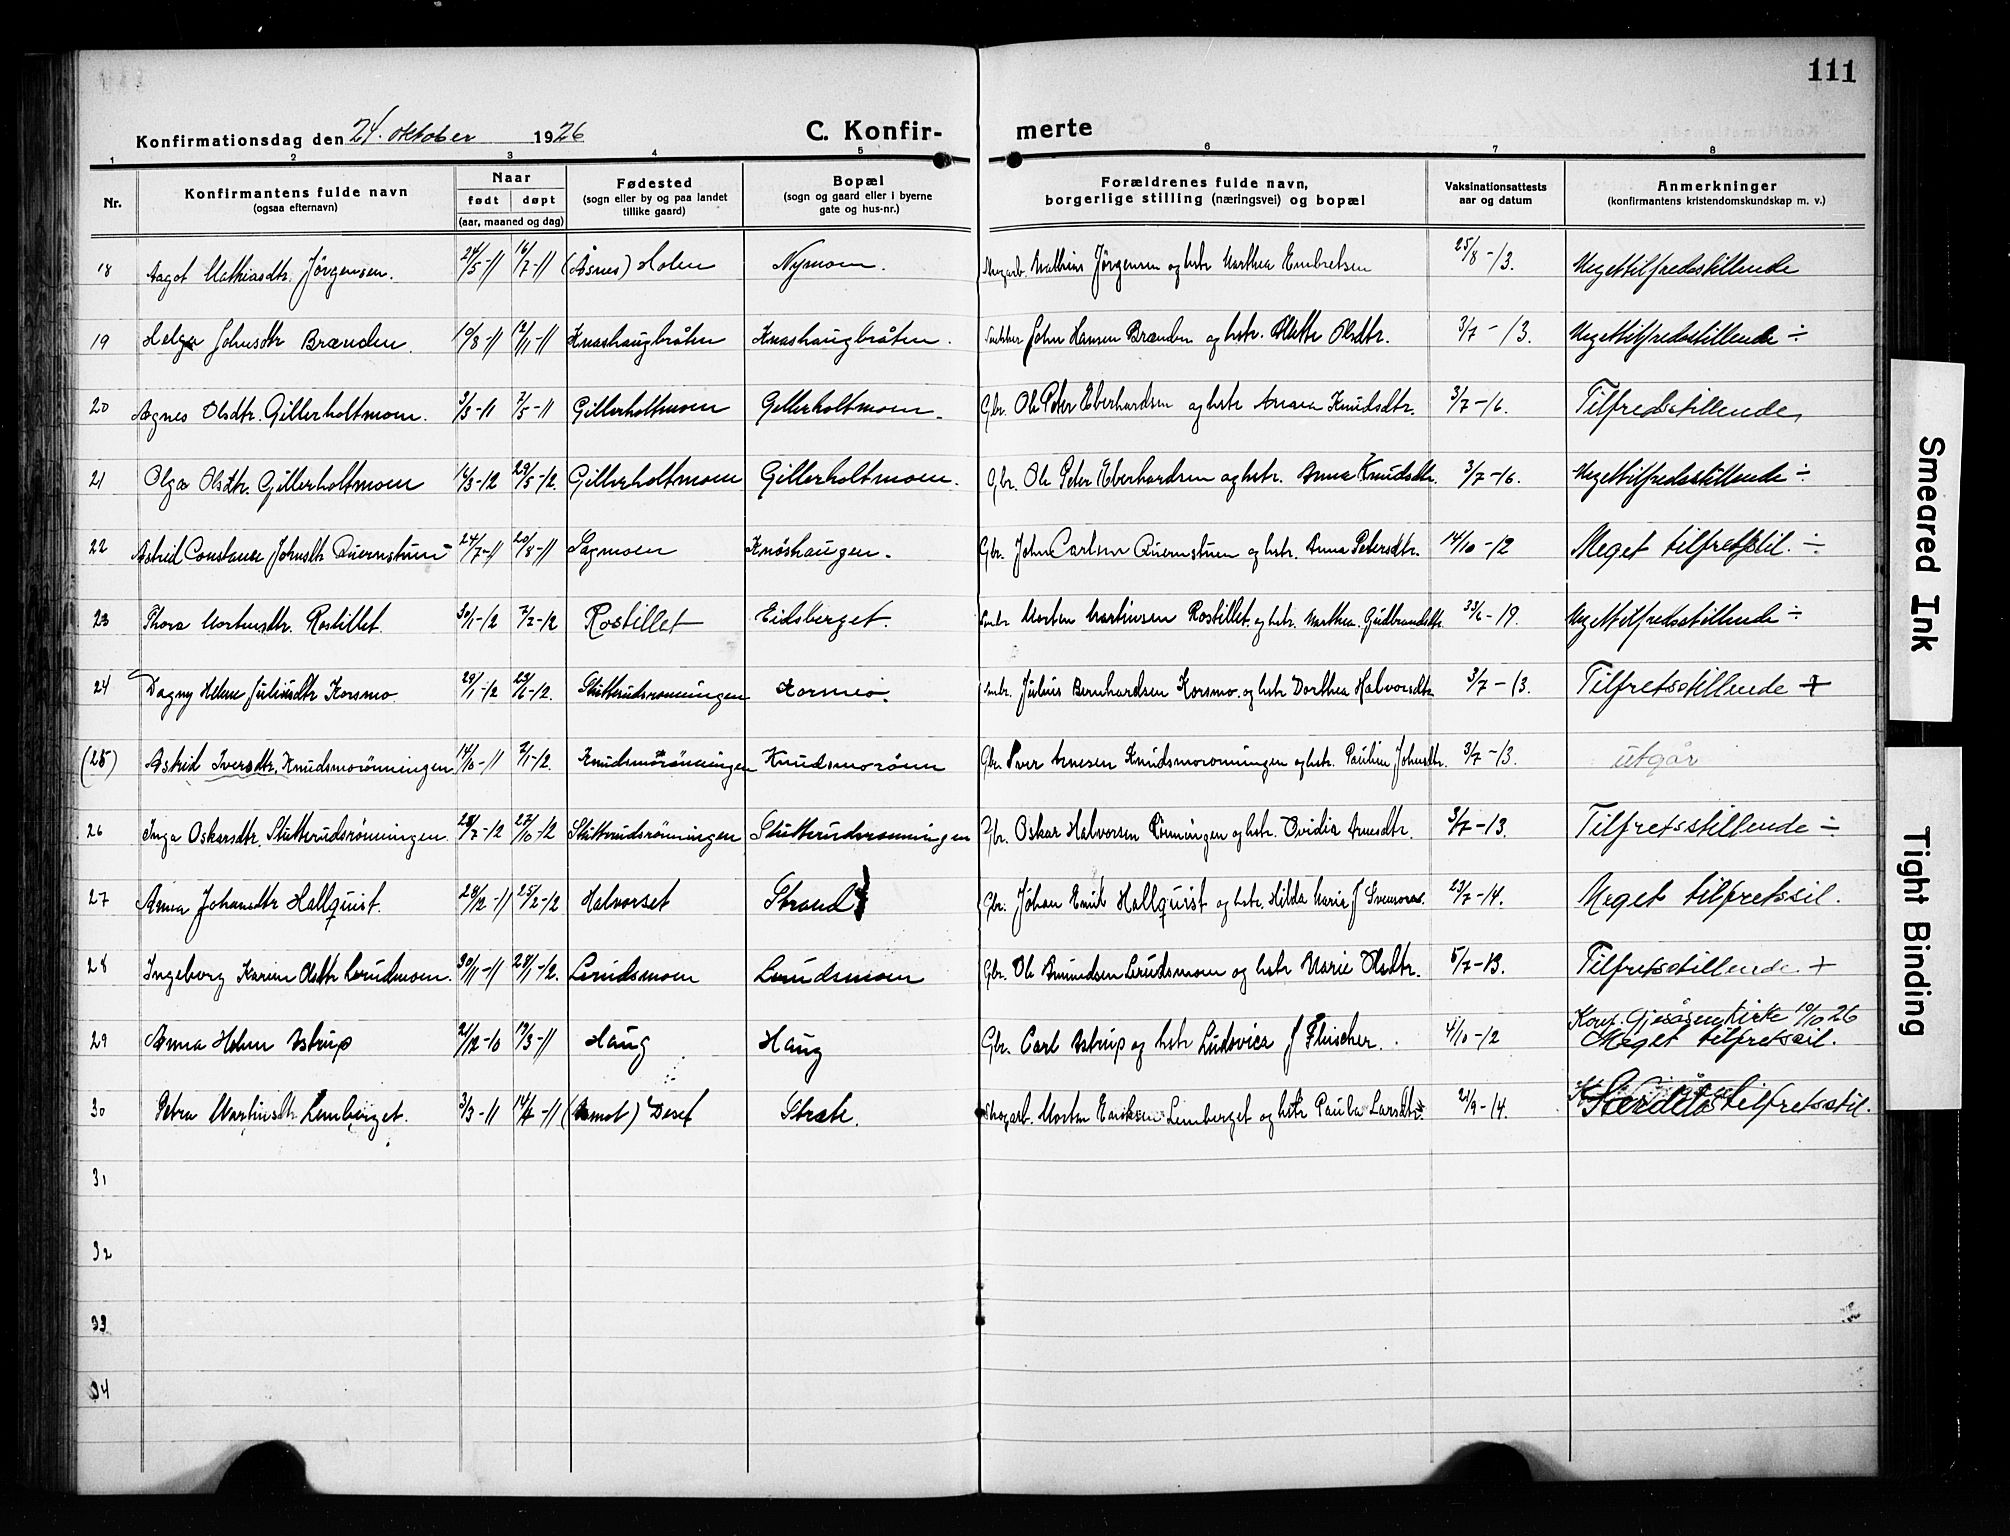 111
Konfirmationsdag den 24. oktober 1926
C. Konfir- merte
1 2 3 4 5 6 7 8
Nr.
Konfirmantens fulde navn
(ogsaa efternavn)
Naar
født døpt
(aar, maaned og dag)
Fødested
(sogn eller by og paa landet
tillike gaard)
Bopæl
(sogn og gaard eller i byerne
gate og hus-nr.)
Forældrenes fulde navn,
borgerlige stilling (næringsvei) og bopæl
Vaksinationsattests
aar og datum
Anmerkninger
(konfirmantens kristendomskundskap m. v.)
18 Aagot Mathiasdtr. Jörgensen. 24/5-11 16/7-11 (Åsnes) Holen Nymoen. Skogarb. Mathias Jörgensen og hstr Marthea Embretsen 25/8-13. Megettilfredsstillende
19 Helga Johnsdtr Brænden. 10/8-11 12/11-11 Knashaugbråten Knashaugbråten. Snekker John Hansen Brænden og hstr. Olette Olsdtr. 3/7-13. Megettilfredsstillende ÷
20 Agnes Olsdtr. Gillerholtmoen. 3/3-11 7/5-11 Gillerholtmoen Gillerholtmoen. Gbr. Ole Peter Eberhardsen og hstr Anna Knudsdtr. 3/7-16. Tilfredsstillende,
21 Olga Olsdtr. Gillerholtmoen 14/3-12 29/5-12. Gillerholtmoen Gillerholtmoen. Gbr. Ole Peter Eberhardsen og hstr. Anna Knudsdtr. 3/7-16. Megettilfredsstillende ÷
22 Astrid Constance Johnsdtr Quernstuen 24/7-11 20/8-11 Sagmoen Knashaugen. Gbr. John Carlsen Quernstuen og hstr. Anna Petersdtr. 14/10-12 Meget tilfretsstil. ÷
23 Thora Mortensdtr. Rostillet. 30/1-12 7/2-12 Rostillet Eidsberget. Smbr. Morten Martinsen Rostillet. og hstr. Marthea. Gudbrandsdtr. 23/6-19. Megettilfredsstillende ÷
24 Dagny Helene Juliusdtr Korsmo. 29/1-12 23/6-12. Stutterudsrönningen Korsmo. Smbr. Julius Bernhardsen Korsmo. og hstr Dorthea Halvorsdtr 3/7-13. Tilfretsstillende +
(25) Astrid Iversdtr. Knudsmorönningen 14/10-11 2/1-12. Knudsmorönningen Knudsmorönn Gbr. Iver Arnesen Knudsmoronningen og hstr. Pauline Johnsdtr. 3/7-13. utgår
26 Inga Oskarsdtr. Stutterudsrönningen. 28/7-12 27/10-12 Stutterudsrönningen Stutterudsronningen Gbr. Oskar Halvorsen Rönningen og hstr. Ovidia Arnesdtr. 3/7-13. Tilfretsstillende ÷
27 Anna Johansdtr Hallquist. 28/12-11 25/2-12 Halvorset Strand Gbr. Johan Emil Hallquist og hstr. Hilda Maria f 23/7-14. Meget tilfretssil.
28 Ingeborg Karine Olsdtr Lerudmoen. 30/11-11 28/1-12. Lerudsmoen Lerudsmoen Gbr. Ole Amundsen Lerudsmoen og hstr Marie Olsdtr. 5/7-13. Tilfretsstillende. +
29 Anna Helene Astrup 21/12-10 19/3-11 Haug Haug Gbr. Carl Astrup og hstr Ludovica f Fleischer. 4/10-12 Konf. Gjesåsen Kirke 10/10 26
Meget tilfretssil.
30 Petra Martinsdtr Lemberget. 3/3-11 14/4-11 (Aamot) Deset Stræte. Skogarb. Morten Eriksen Lemberget og hstr Paula Larsdtr. 21/9-14. Særdeles tilfretsstil.
31
32
33
34
Smeared Ink
Tight Binding